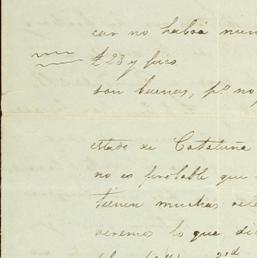 car no habia nun
£23 y pico
son buenos, pº no p
estado de Cataluña
no es probable que
tienen muchas rela
veremos lo que di